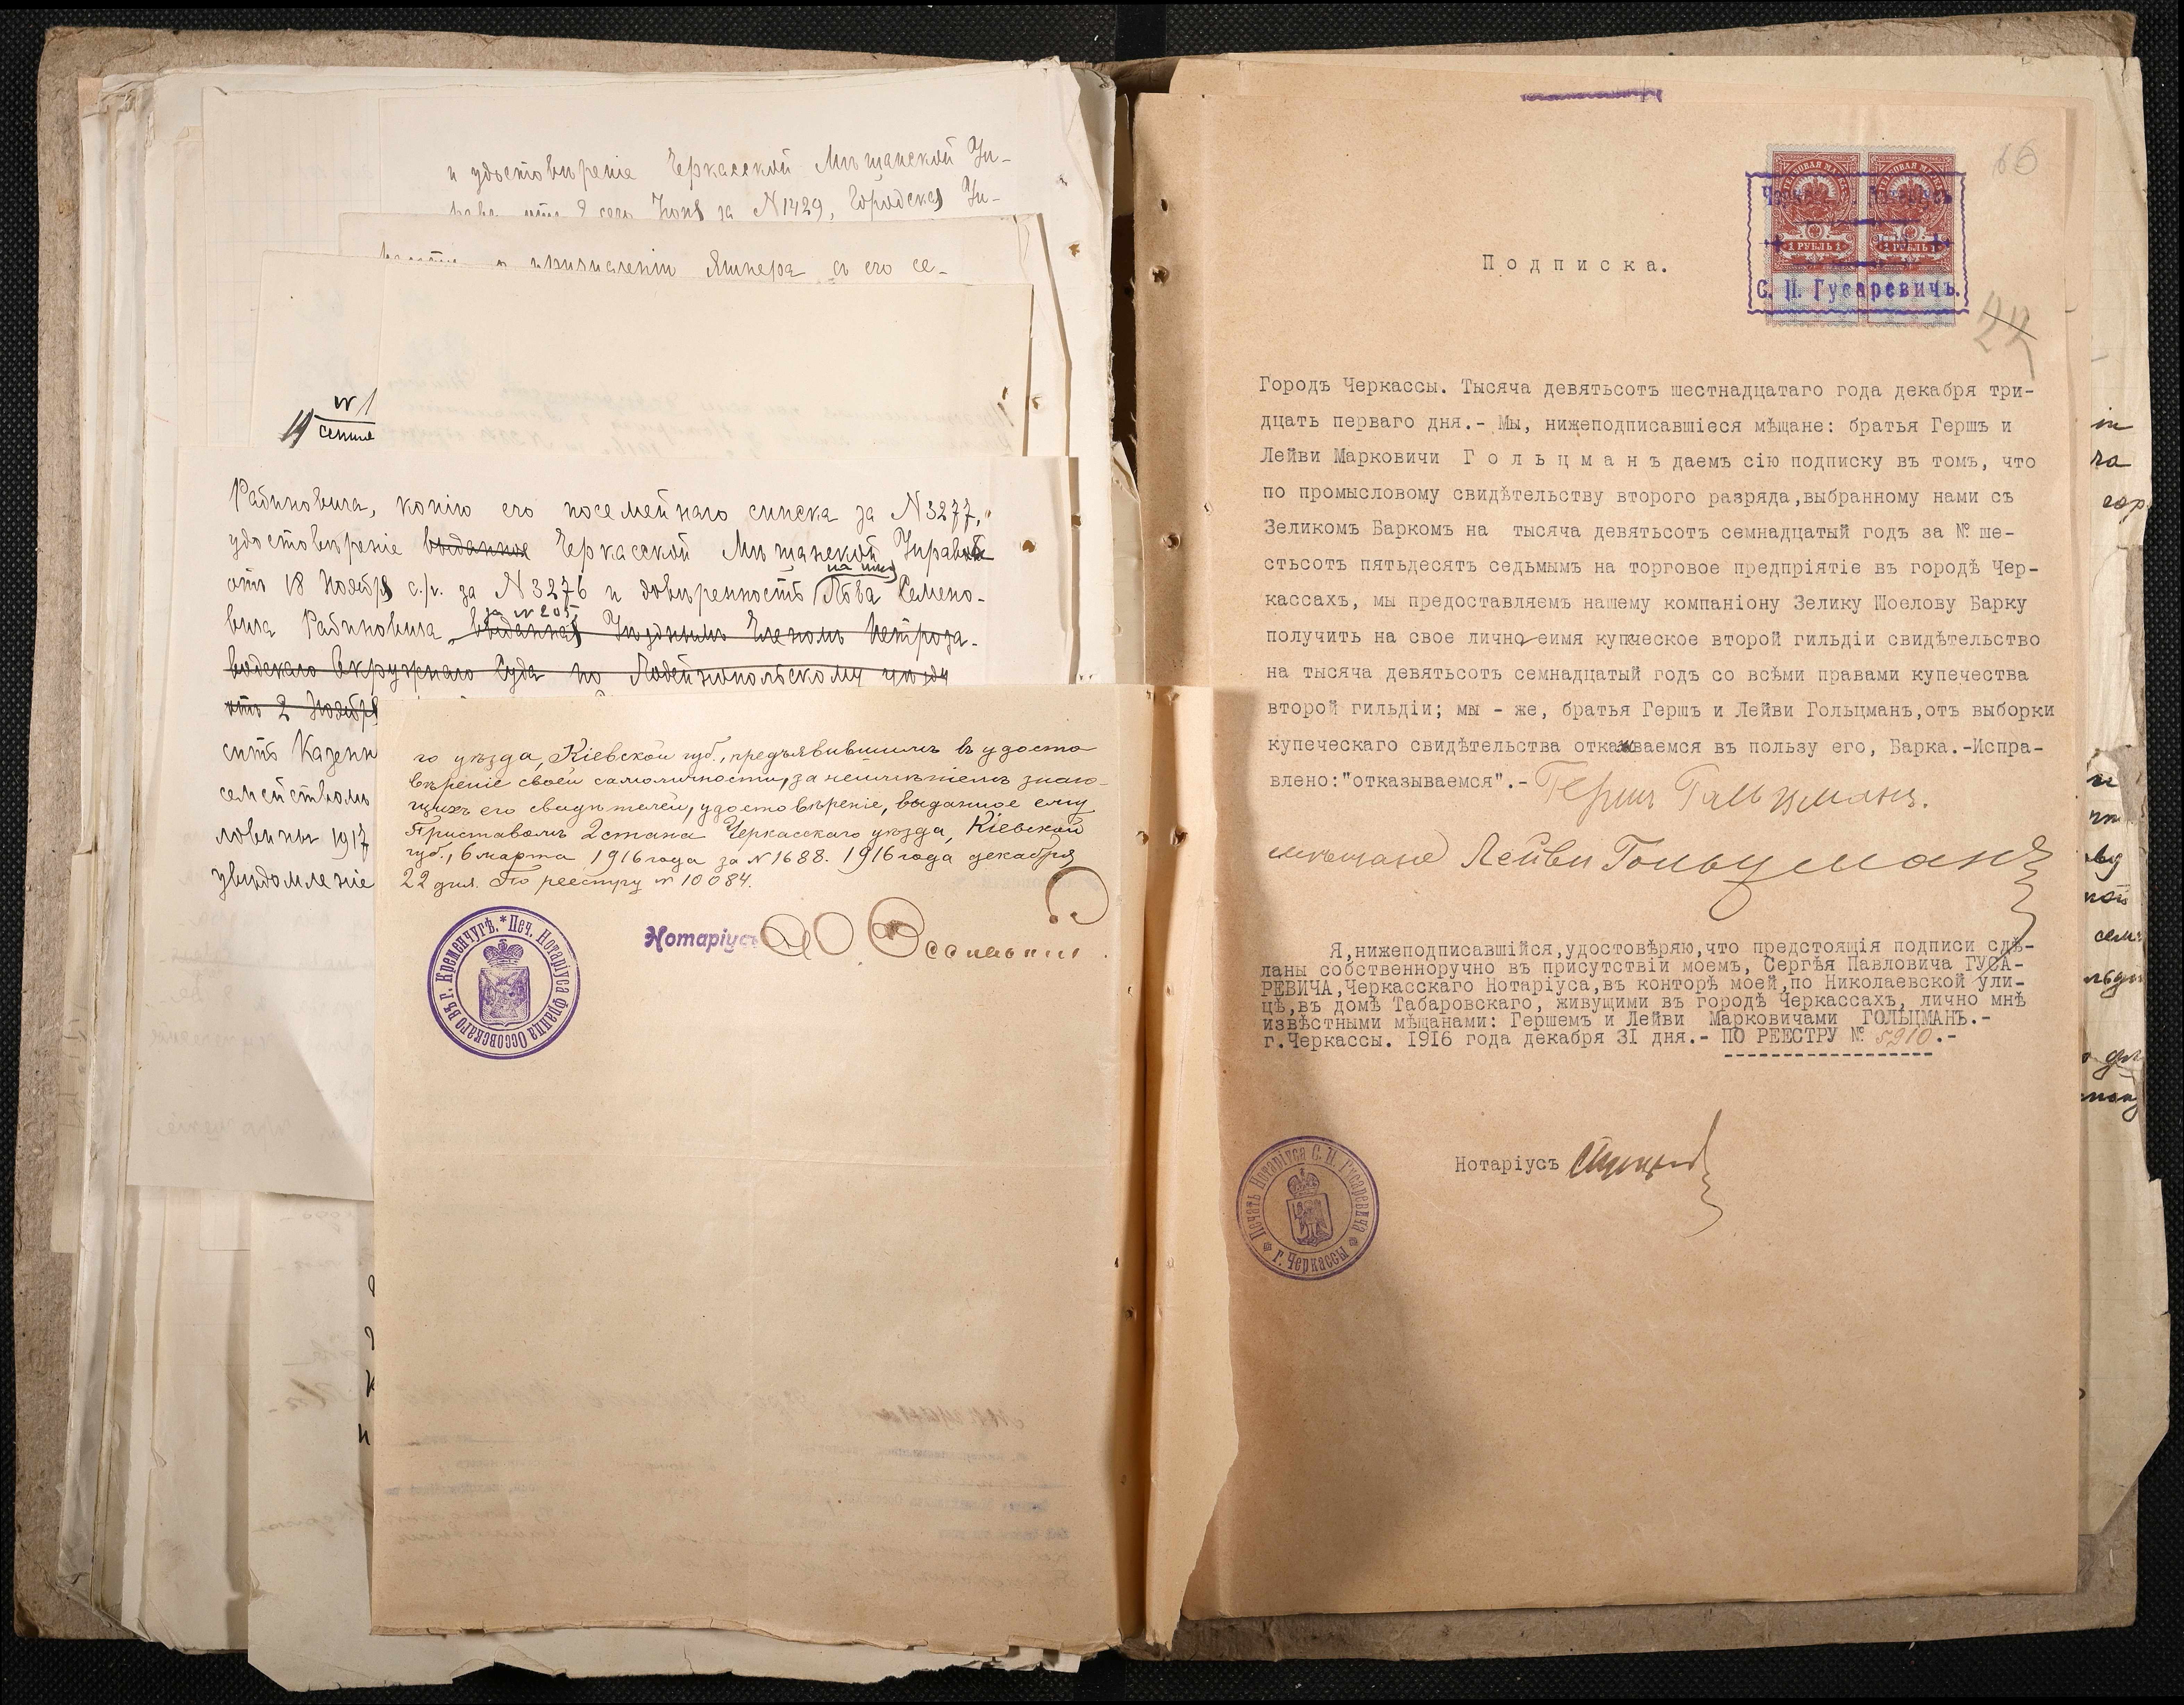 и удостовѣреніе Черкасской Мѣщанской Уп-
за N 1429, Городская Уп-
Яшнера съ его се-
N 1
Рабиновича, копію его посемейнаго списка за N 3277,
удостовѣреніе выданное Черкасской Мѣщанской Управы
отъ 18 Ноября с/г. за N 3276 и довѣренность Лова Семено-
за N 205
вича Рабиновича, выданная Уѣзднымъ Членомъ Петроза-
водскаго Окружнаго Суда по Лодейнопольскому уѣзду
отъ 2 Ноября
ситъ Казенн
семействомъ
ловины 1917
увѣдомленіе
го уѣзда, Кіевской губ., предъявившимъ въ удосто
вѣреніе своей самоличности, за неимѣніемъ знаю-
щихъ его свидѣтелей, удостовѣреніе, выданное ему
Приставомъ 2 стана Черкасскаго уѣзда, Кіевской
губ., 6 марта 1916 года за N 1688. 1916 года декабря
22 дня. По реестру N 10084.
Нотаріусъ
* Печ. Нотаріуса Франца Оссовскаго въ г. Кременчугѣ.
66
1 РУБЛЬ 1
1 РУБЛЬ 1
С. П. Гусаревичъ.
22
Подписка.
Городъ Черкассы. Тысяча девятьсотъ шестнадцатаго года декабря три-
дцать перваго дня.- Мы, нижеподписавшіеся мѣщане: братья Гершъ и
Лейви Марковичи Г о л ь ц м а н ъ даемъ сію подписку въ томъ, что
по промысловому свидѣтельству второго разряда,выбранному нами съ
Зеликомъ Баркомъ на тысяча девятьсотъ семнадцатый годъ за № ше-
стьсотъ пятьдесятъ седьмымъ на торговое предпріятіе въ городѣ Чер-
кассахъ, мы предоставляемъ нашему компаніону Зелику Шоелову Барку
получить на свое лично еимя купческое второй гильдіи свидѣтельство
на тысяча девятьсотъ семнадцатый годъ со всѣми правами купечества
второй гильдіи; мы - же, братья Гершъ и Лейви Гольцманъ,отъ выборки
купеческаго свидѣтельства отказываемся въ пользу его, Барка.-Испра-
влено:"отказываемся".- Гершъ Гальцманъ.
мѣщане Лейви Гольцманъ
Я,нижеподписавшійся,удостовѣряю,что предстоящія подписи сдѣ-
ланы собственноручно въ присутствіи моемъ, Сергѣя Павловича ГУСА-
РЕВИЧА,Черкасскаго Нотаріуса,въ конторѣ моей,по Николаевской ули-
цѣ,въ домѣ Табаровскаго, живущими въ городѣ Черкассахъ, лично мнѣ
извѣстными мѣщанами: Гершемъ и Лейви Марковичами ГОЛЬЦМАНЪ.-
г.Черкассы. 1916 года декабря 31 дня.- ПО РЕЕСТРУ № 5910.-
Нотаріусъ
Печать Нотаріуса С. П. Гусаревича * г. Черкассы *